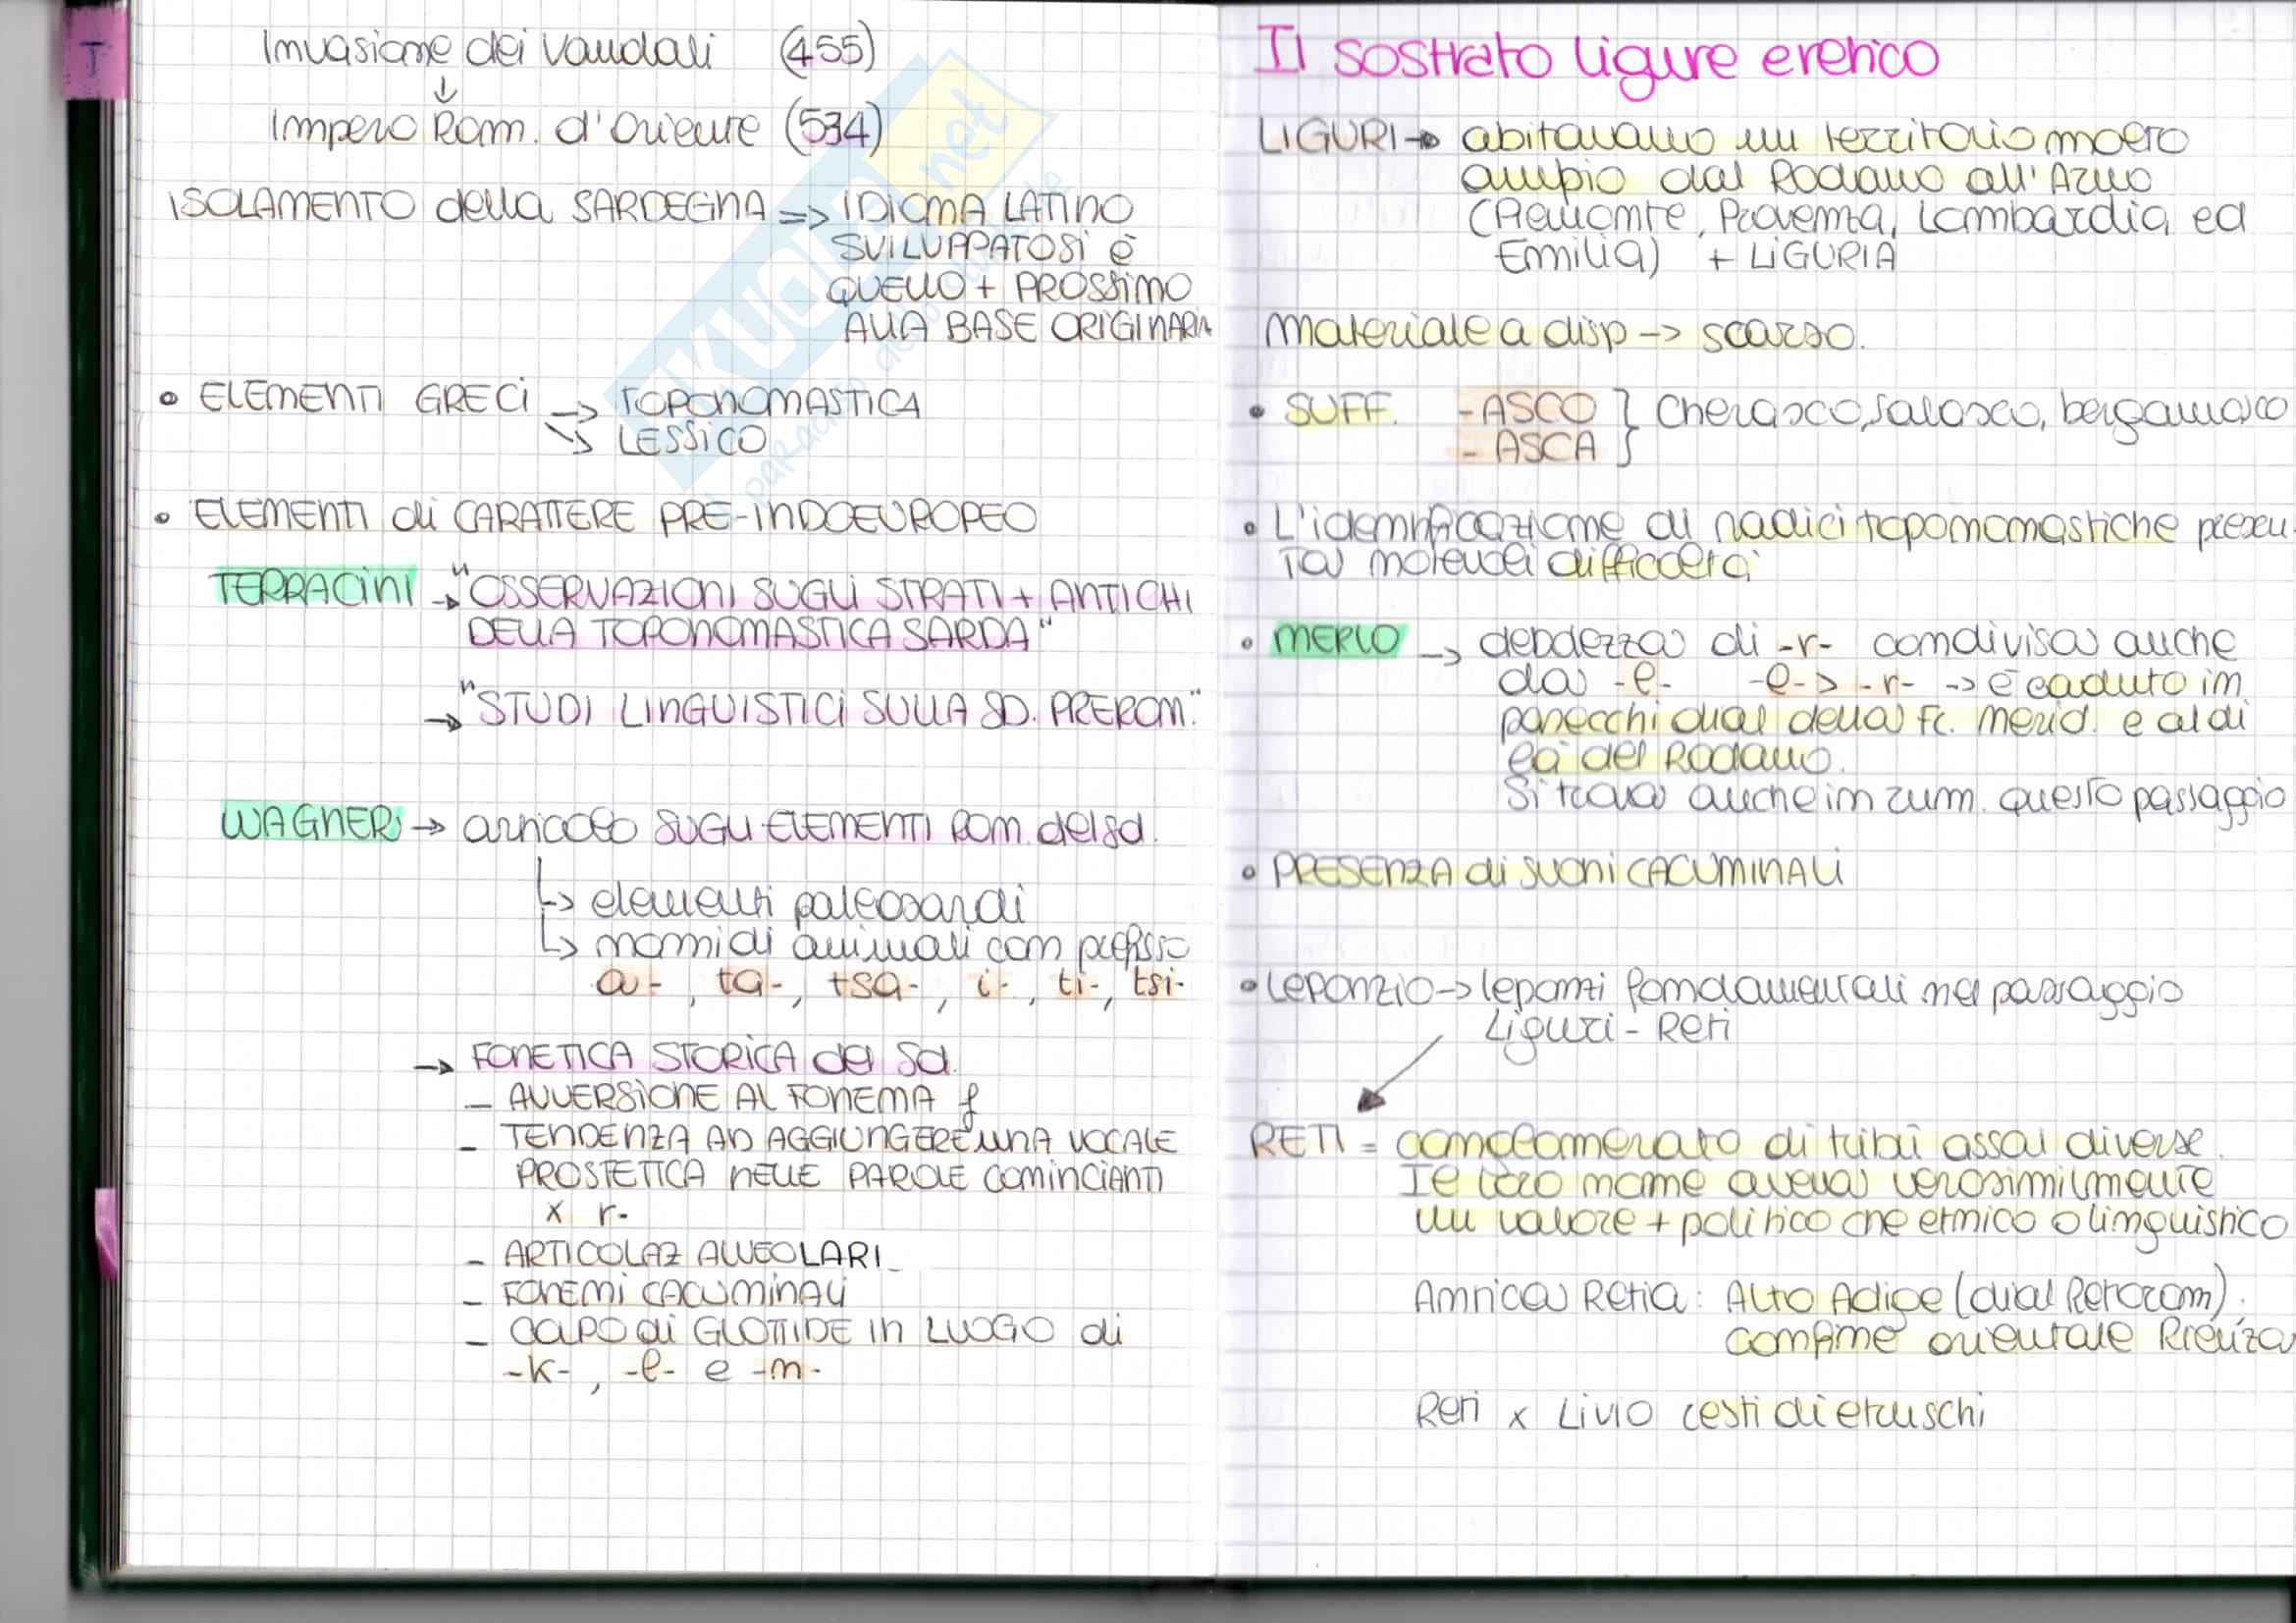 T
Invasione dei Vandali (455)
↓
Impero Rom. d'Oriente (534)
ISOLAMENTO della SARDEGNA => IDIOMA LATINO
SVILUPPATOSI è
QUELLO + PROSSIMO
ALLA BASE ORIGINARIA
• ELEMENTI GRECI -> TOPONOMASTICA
-> LESSICO
• ELEMENTI di CARATTERE PRE-INDOEUROPEO
TERRACINI -> "OSSERVAZIONI SUGLI STRATI + ANTICHI
DELLA TOPONOMASTICA SARDA"
-> "STUDI LINGUISTICI SULLA SD. PREROM."
WAGNER -> articolo SUGLI ELEMENTI ROM. del sd.
↳ elementi paleosardi
↳ nomi di animali con prefisso
a-, ta-, tsa-, i-, ti-, tsi-
-> FONETICA STORICA del Sd.
- AVVERSIONE AL FONEMA f
- TENDENZA AD AGGIUNGERE UNA VOCALE
PROSTETICA NELLE PAROLE COMINCIANTI
x r-
- ARTICOLAZ ALVEOLARI
- FONEMI CACUMINALI
- COLPO di GLOTTIDE IN LUOGO di
-k-, -l- e -n-
Il sostrato ligure e retico
LIGURI -> abitavano un territorio molto
ampio dal Rodano all'Arno
(Piemonte, Provenza, Lombardia ed
Emilia) + LIGURIA
Materiale a disp -> scarso.
• SUFF. -ASCO } Cherasco, salasco, bergamasco
- ASCA
• L'identificazione di radici toponomastiche presen-
ta notevoli difficoltà
• MERLO -> debolezza di -r- condivisa anche
da -l- -l- > -r- -> è caduto in
parecchi dial della Fr. merid. e al di
là del Rodano.
Si trova anche in rum. questo passaggio
• PRESENZA di SUONI CACUMINALI
• Leponzio -> leponzi fondamentali nel passaggio
Liguri - Reti
RETI = conglomerato di tribù assai diverse.
Il loro nome aveva verosimilmente
un valore + politico che etnico o linguistico
Antica Retia: Alto Adige (dial Retorom).
confine orientale Rienza
Reti x Livio resti di etruschi
SKUOLA.net